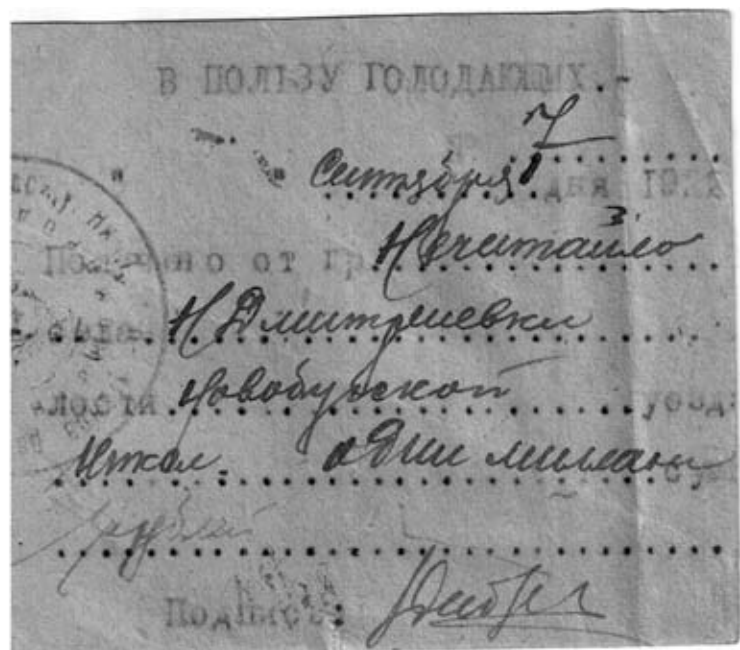 В ПОЛЬЗУ ГОЛОДАЮЩИХ.-
7
Сентября дня 192
Получено от гр. Нечитайло
села Н Дмитриевки
лости Новобугской уезд
Никол. один милион
рублей
Подпись: